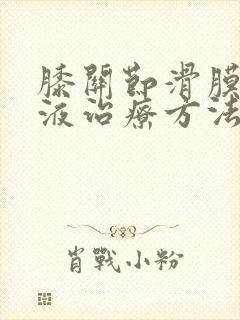 膝關節滑膜
液治療方法
肖戰小粉